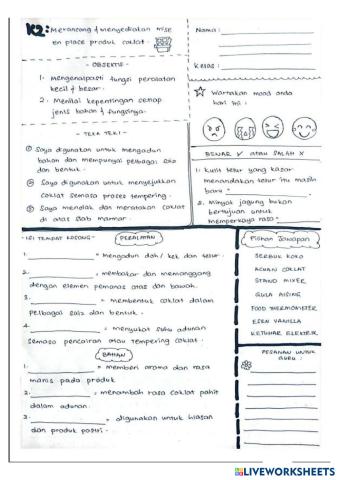 K2: Merancang & menyediakan mise
en place produk coklat.
Nama :
Kelas :
- OBJEKTIF -
1. Mengenalpasti fungsi peralatan
kecil & besar.
2. Menilai kepentingan setiap
jenis bahan & fungsinya.
☆ Warnakan mood anda
hari ini :
- TEKA TEKI -
① Saya digunakan untuk mengadun
bahan dan mempunyai pelbagai saiz
dan bentuk.
② Saya digunakan untuk menyejukkan
coklat semasa proses tempering.
③ Saya menolak dan meratakan coklat
di atas slab marmar.
BENAR ✓ atau SALAH X
1. Kulit telur yang kasar
menandakan telur itu masih
baru
2. Minyak jagung bukan
bertujuan untuk
memperkaya rasa
- ISI TEMPAT KOSONG -
PERALATAN
1. = Mengadun doh / kek dan telur.
2. = membakar dan memanggang
dengan elemen pemanas atas dan bawah.
3. = membentuk coklat dalam
pelbagai saiz dan bentuk.
4. = menyukat suhu adunan
semasa pencairan atau tempering coklat.
BAHAN
1. = memberi aroma dan rasa
manis pada produk
2. = menambah rasa coklat pahit
dalam adunan.
3. = digunakan untuk hiasan
dan produk pastri.
Pilihan Jawapan
SERBUK KOKO
ACUAN COKLAT
STAND MIXER
GULA AISING
FOOD THERMOMETER
ESEN VANILLA
KETUHAR ELEKTRIK
PESANAN UNTUK
GURU :
LIVEWORKSHEETS